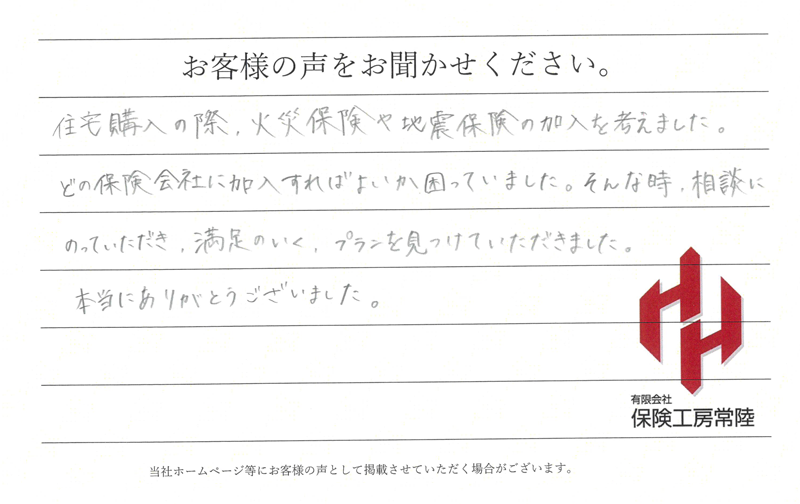 お客様の声をお聞かせください。
住宅購入の際,火災保険や地震保険の加入を考えました。
どの保険会社に加入すればよいか困っていました。そんな時,相談に
のっていただき,満足のいく,プランを見つけていただきました。
本当にありがとうございました。
有限会社
保険工房常陸
当社ホームページ等にお客様の声として掲載させていただく場合がございます。